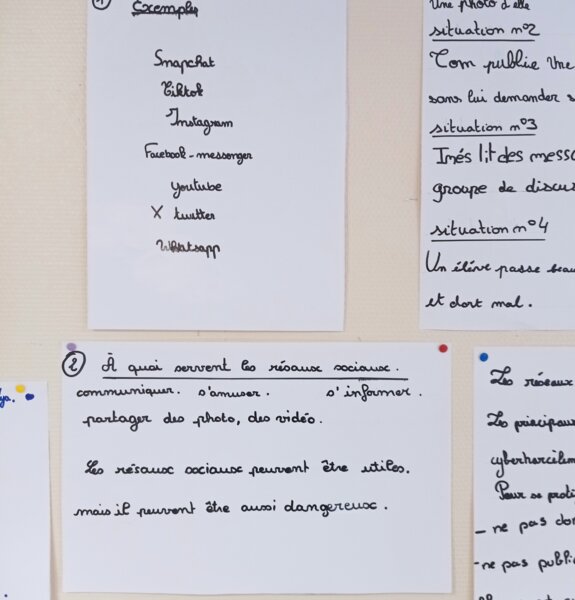 ① Exemples
Snapchat
Tiktok
Instagram
Facebook-messenger
youtube
X twitter
Whatsapp
Une photo d'elle
situation n°2
Tom publie une
sans lui demander s
situation n°3
Inés lit des messa
groupe de discus
situation n°4
Un éléve passe beau
et dort mal.
② À quoi servent les résaux sociaux.
communiquer. s'amuser. s'informer.
partager des photo, des vidéo.
Les résaux sociaux peuvent être utiles.
mais il peuvent être aussi dangereux.
Les réseaux
Les principaux
cyberharcèlem
Pour se proté
- ne pas don
- ne pas public
ya.